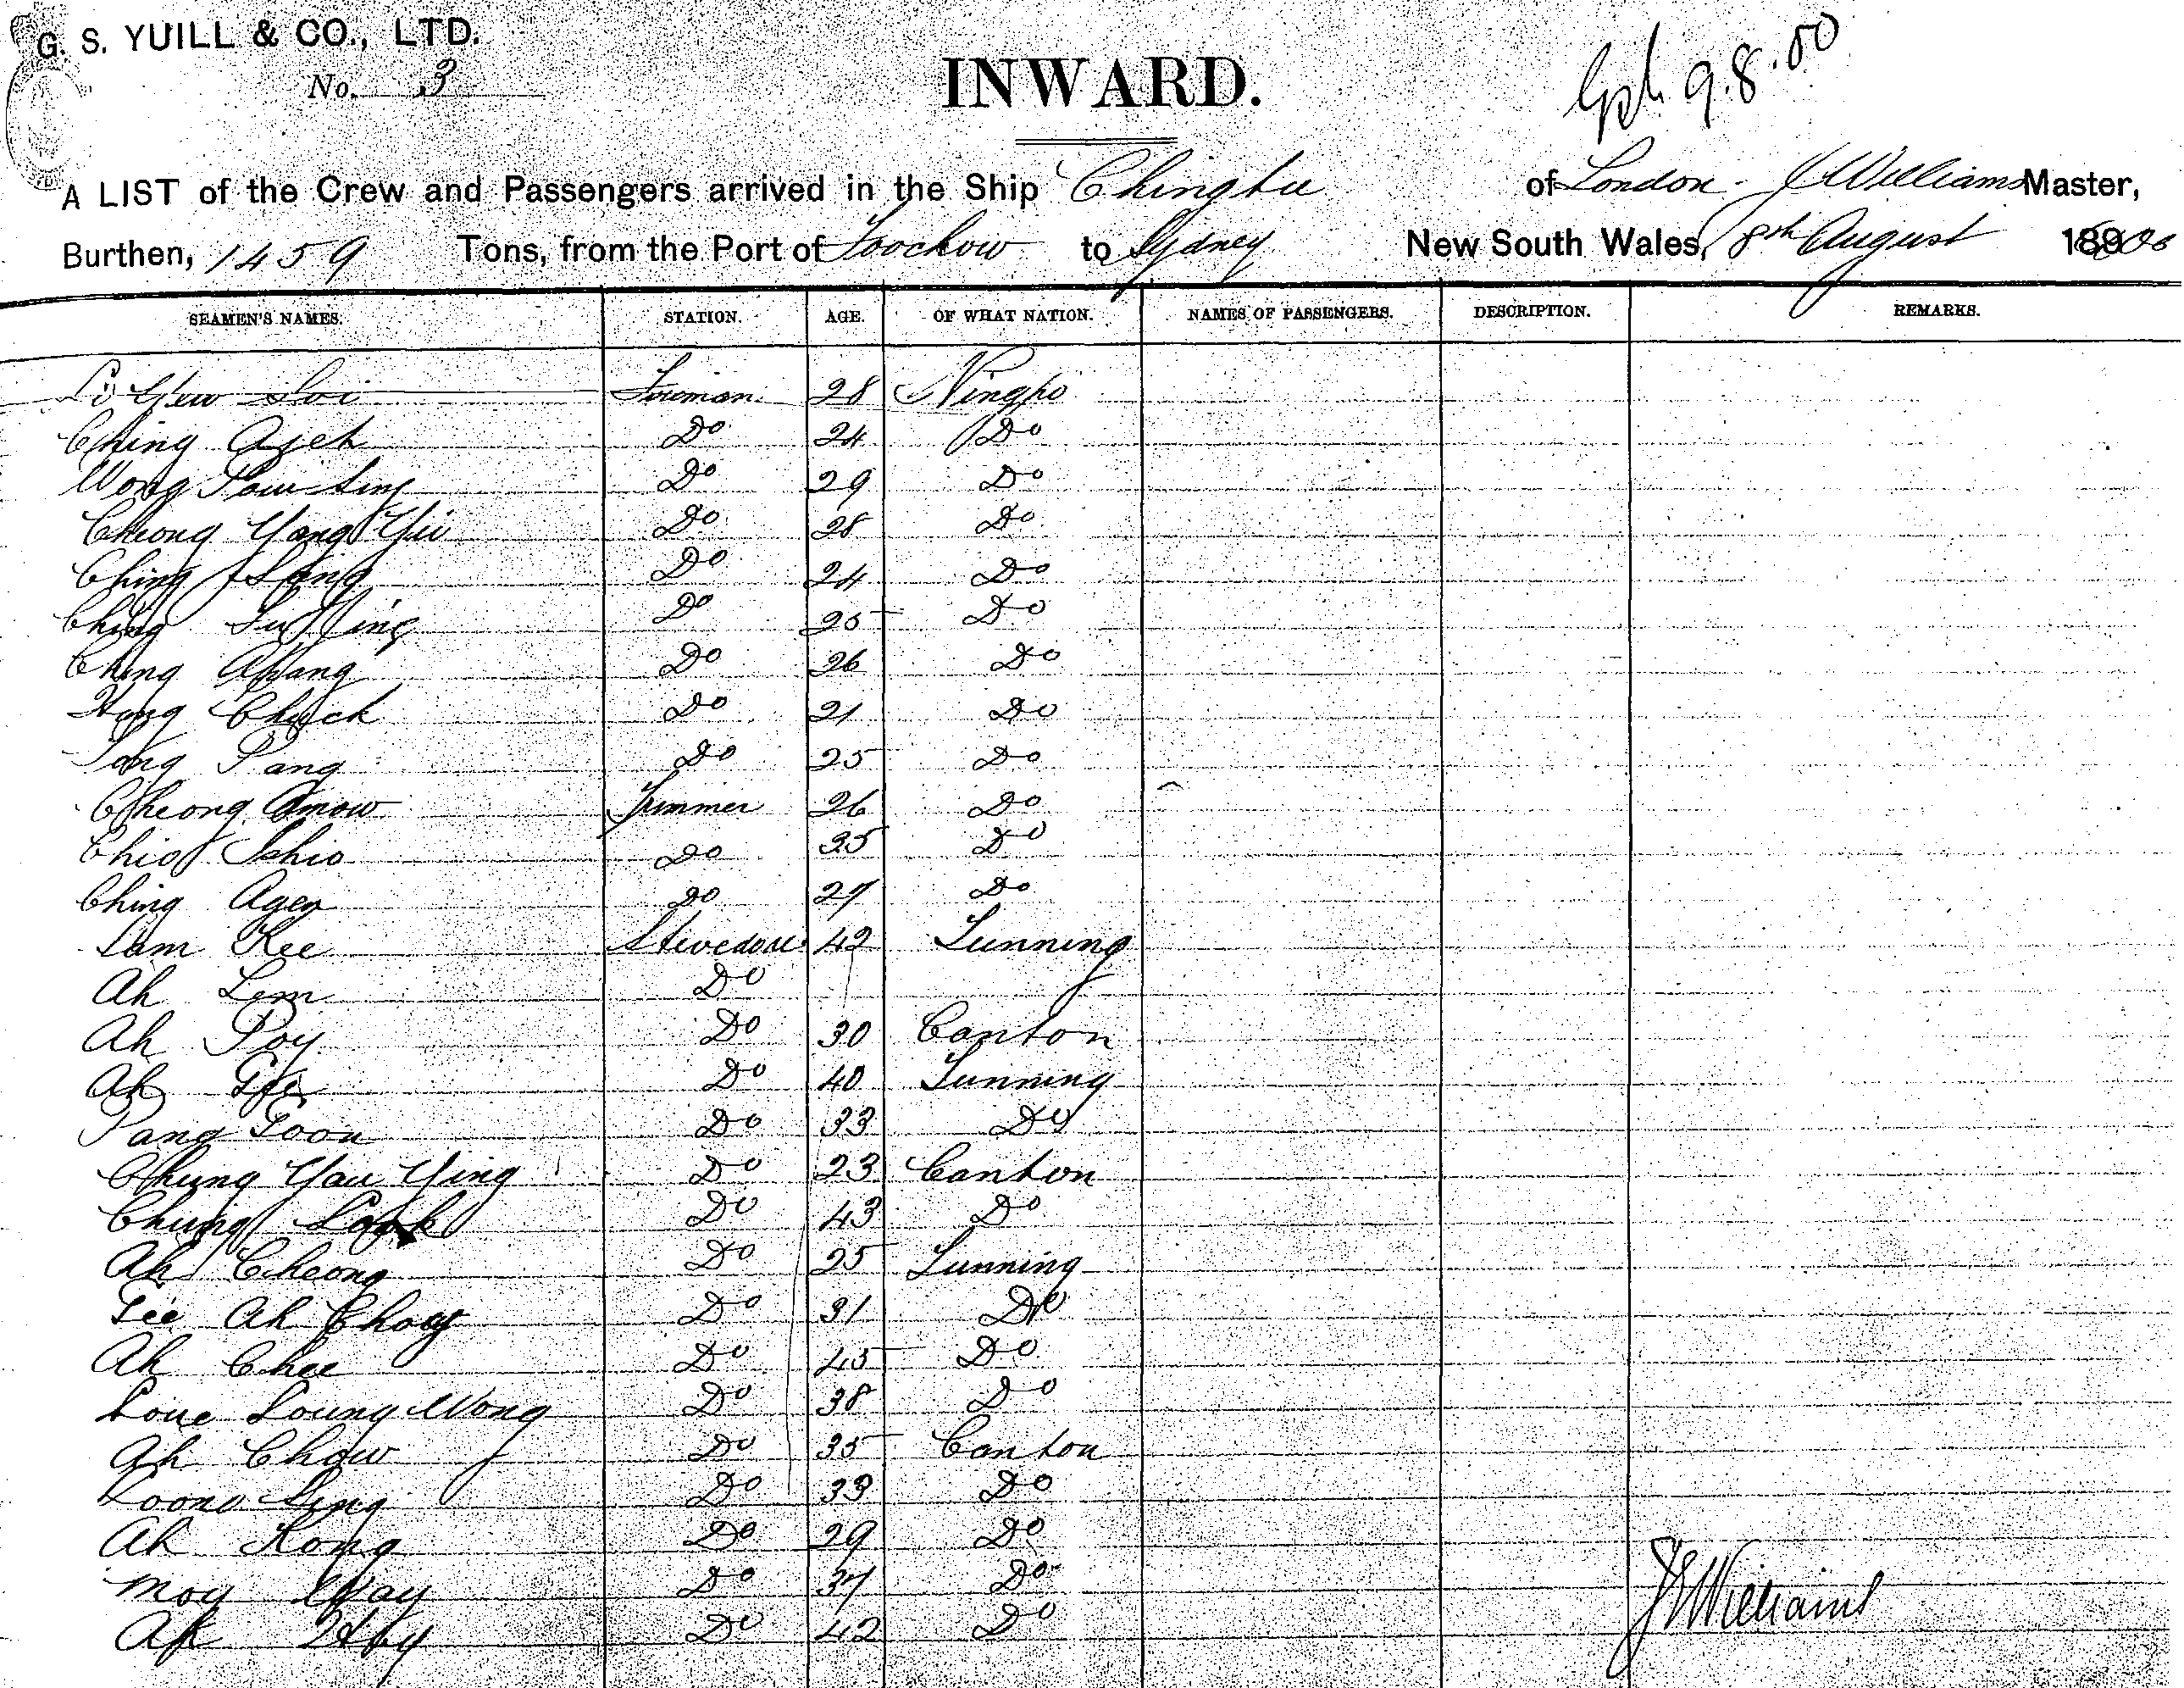 G. S. YUILL & CO., LTD.
No. 3
INWARD.
9.8.00
A LIST of the Crew and Passengers arrived in the Ship Chingtu of London J Williams Master,
Burthen, 1459 Tons, from the Port of Foochow to Sydney New South Wales, 8th August 1900
SEAMEN'S NAMES. STATION. AGE. OF WHAT NATION. NAMES OF PASSENGERS. DESCRIPTION. REMARKS.
Yew Fireman 28 Ningpo
Ching Do 24 Do
Wong Do 29 Do
Cheong Yang Yii Do 28 Do
Ching Do 24 Do
Ching Do 25 Do
Ching Do 26 Do
Chuck Do 21 Do
Pang Do 25 Do
Cheong Amow Trimmer 26 Do
Do 25 Do
Ching Do 27 Do
Sam Kee Stevedore 42 Sunning
Ah Lem Do
Ah Poy Do 30 Canton
Ah Do 40 Sunning
Pang Do 33 Do
Chung Yau Ying Do 23 Canton
Chung Do 43 Do
Ah Cheong Do 25 Sunning
Ah Choy Do 31 Do
Ah Chee Do 45 Do
Loung Wong Do 38 Do
Ah Chow Do 35 Canton
Sing Do 33 Do
Ah Kong Do 29 Do
Moy Way Do 37 Do
Ah Do 42 Do
J Williams